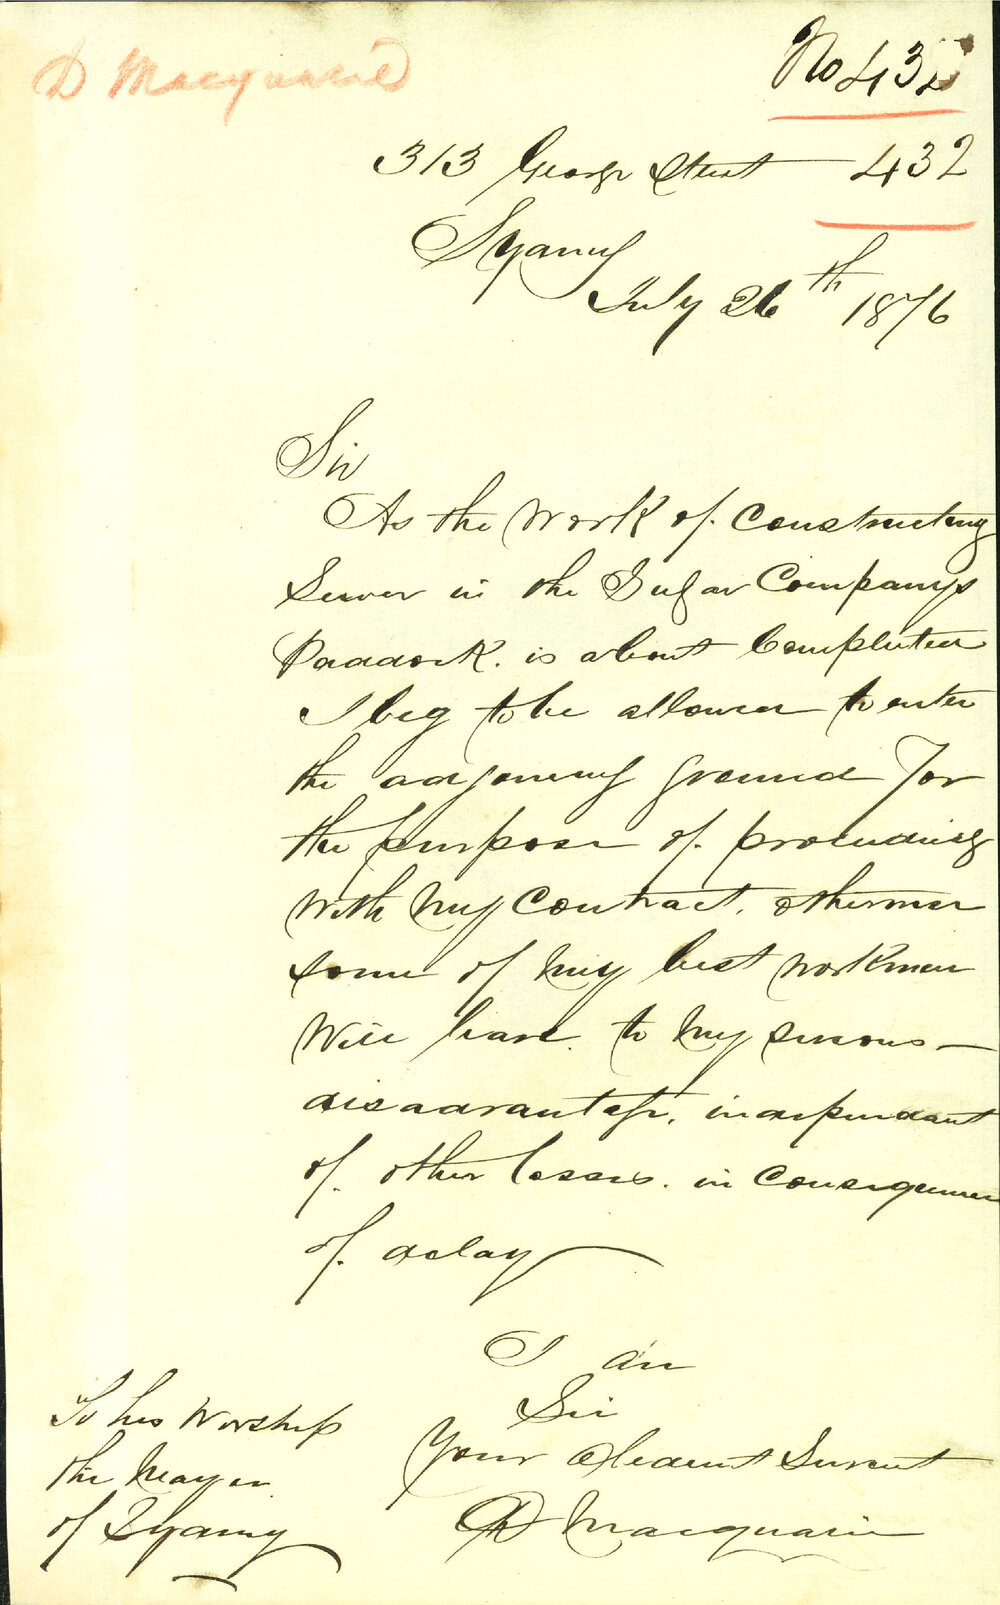 D Macquarie
No 432
313 George Street 432
Sydney
July 26th 1876
Sir
As the Work of Constructing
Sewer in the Sugar Companys
Paddock. is about Completed
I beg to be allowed to enter
the adjoining ground for
the purpose of. proceeding
with my Contract. otherwise
some of my best workmen
Will leave. to my serious
disadvantage. independant
of. other losses. in Consequence
of. delay
I am
Sir
Your Obedient Servant
D Macquarie
To his Worship
the Mayor
of Sydney